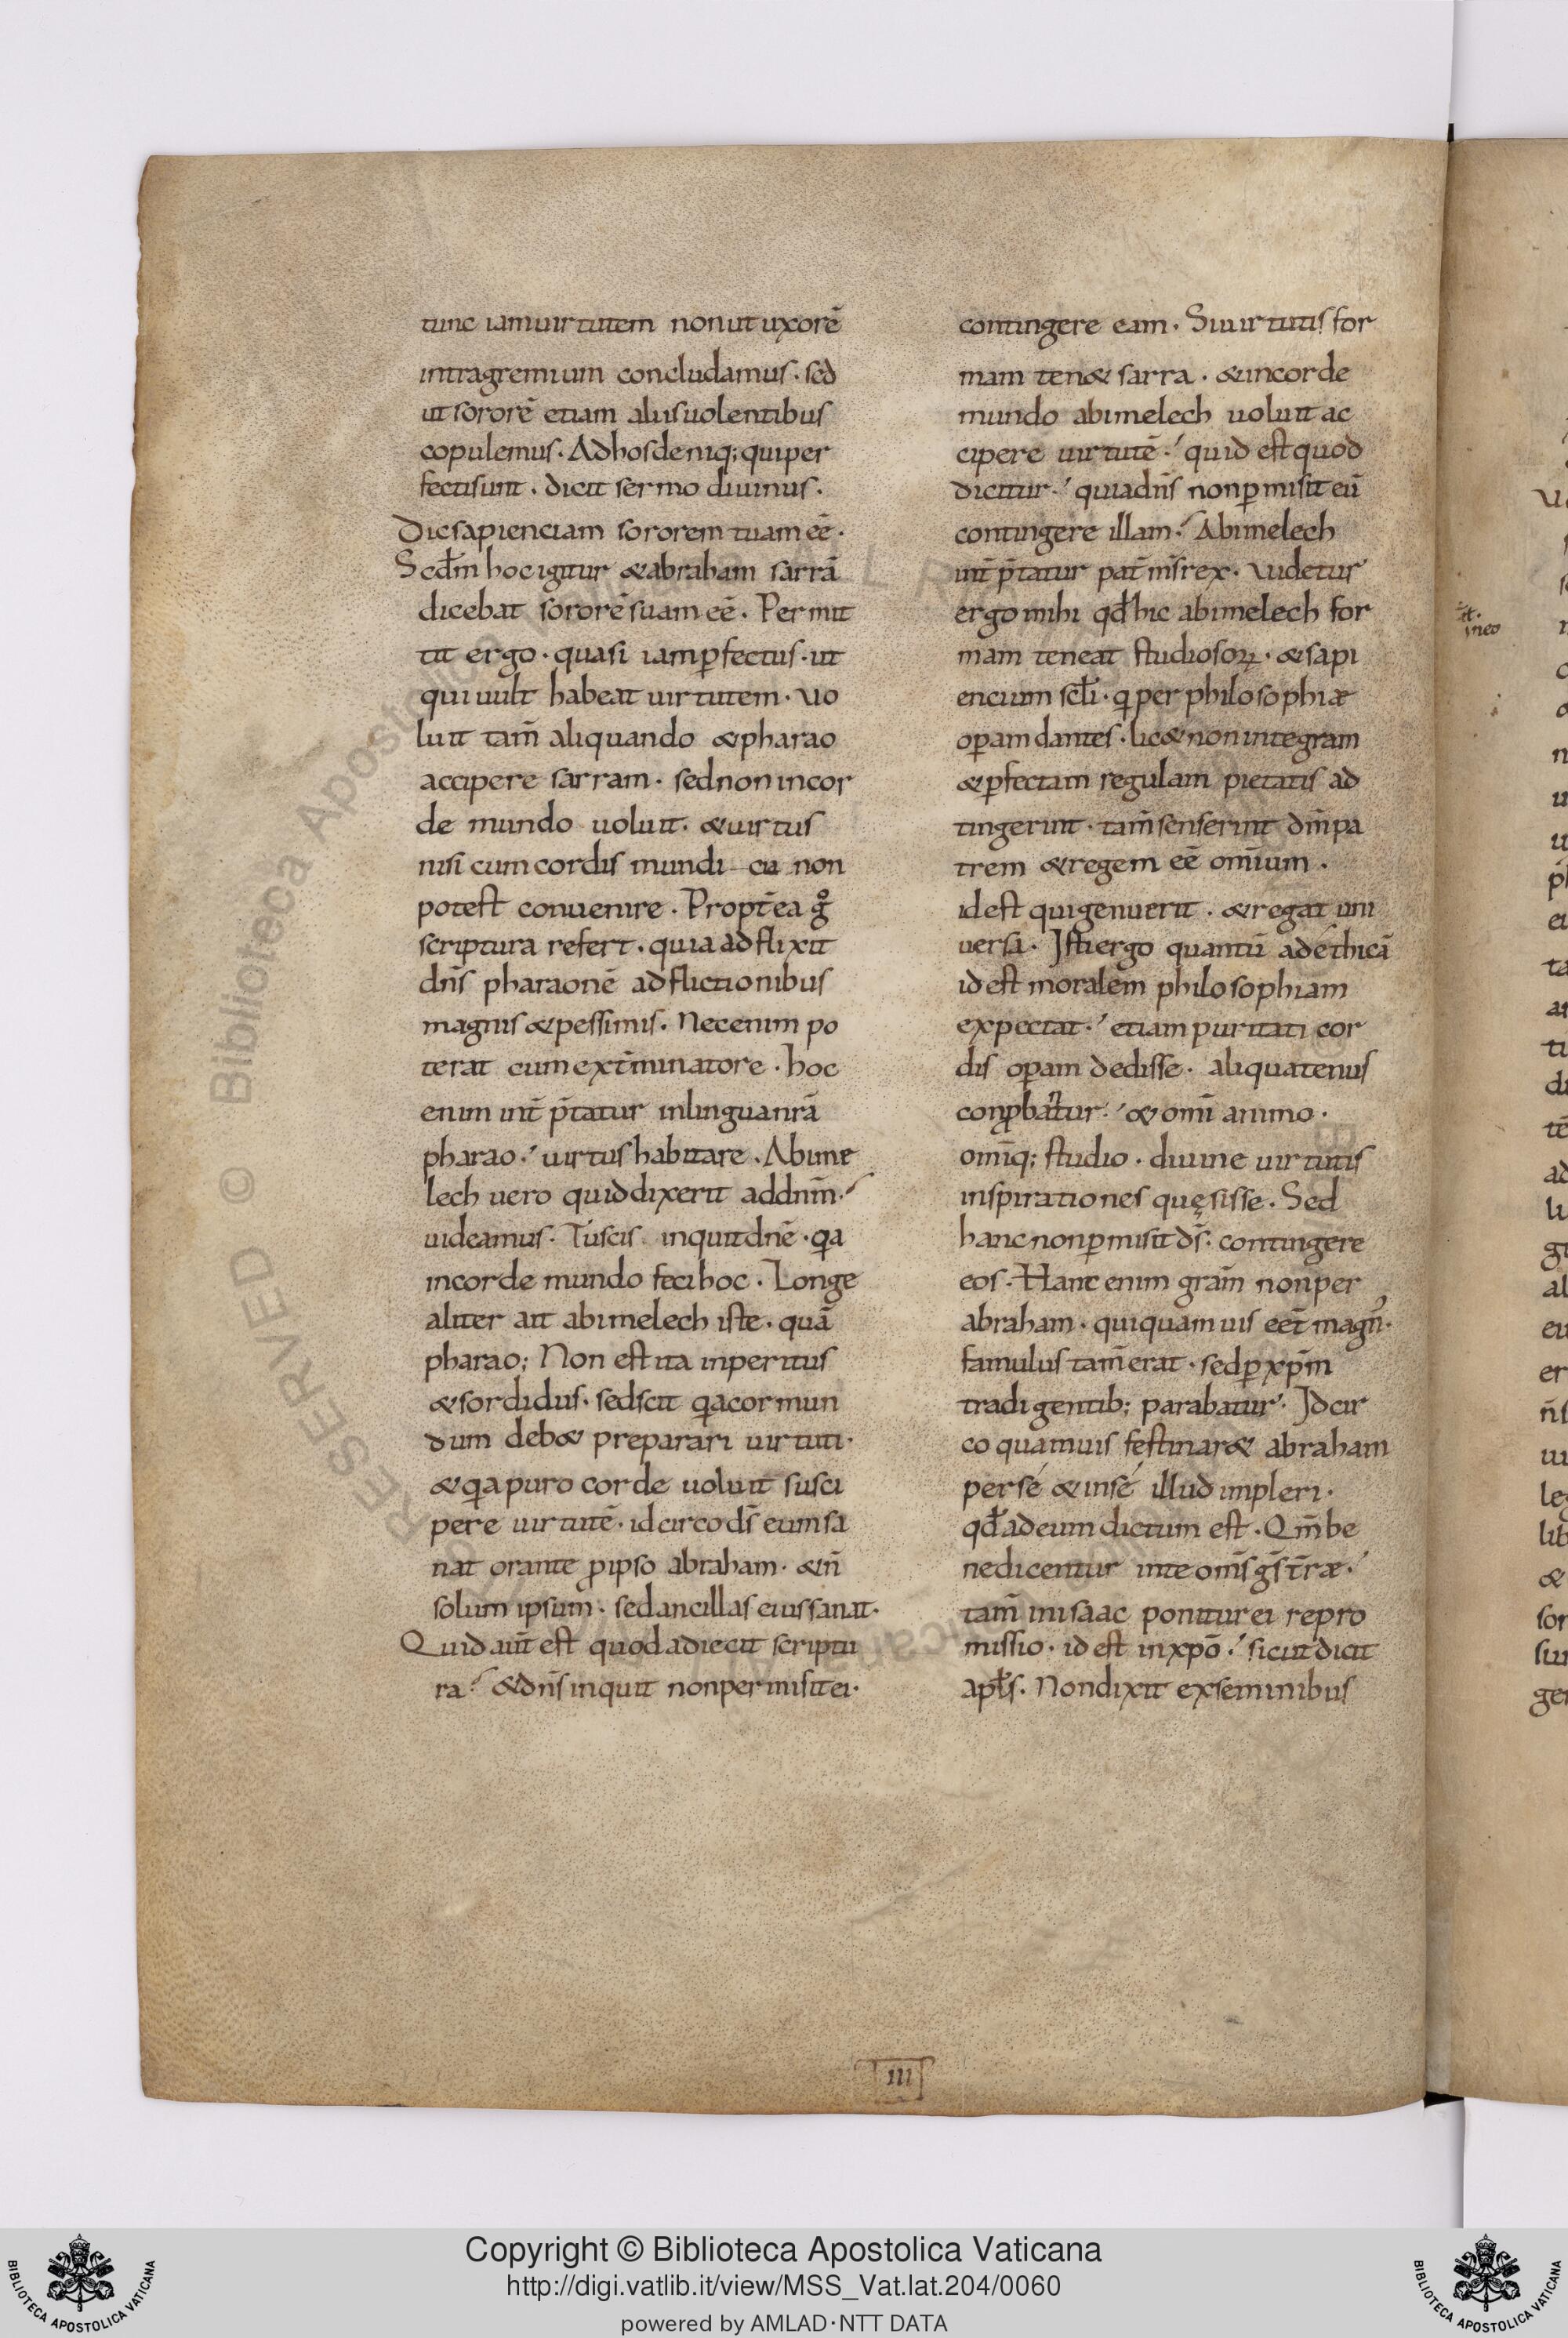 tunc iam uirtutem non ut uxorē
intra gremium concludamus · sed
ut sororē etiam aliis uolentibus
copulemus · Ad hos deniq; qui per
fecti sunt · dicit sermo diuinus ·
Dic sapienciam sororem tuam eē ·
Scdm̄ hoc igitur & abraham sarrā
dicebat sororē suam eē · Permit
tit ergo · quasi iam ꝑfectus · ut
qui uult habeat uirtutem · uo
luit tam̄ aliquando & pharao
accipere sarram · sed non in cor
de mundo uoluit · & uirtus
nisi cum cordis mundi cia non
potest conuenire · Propt̄ea gͦ
scriptura refert · quia adflixit
dn̄s pharaonē adflictionibus
magnis & pessimis · Nec enim po
terat cum ext̄minatore · hoc
enim int̄ p̄tatur in lingua nr̄ā
pharao ·' uirtus habitare · Abime
lech uero quid dixerit ad dnm̄ ·
uideamus · Tu scis inquit dnē · qa
in corde mundo feci hoc · Longe
aliter ait abimelech iste · quā
pharao; Non est ita inperitus
& sordidus · sed scit qa cor mun
dum deb& preparari uirtuti ·
& qa puro corde uoluit susci
pere uirtutē · idcirco ds̄ eum sa
nat orante ꝓ ipso abraham · & n̄
solum ipsum · sed ancillas eius sanat ·
Quid aut̄ est quod adiecit scriptu
ra ? & dn̄s inquit non permisit ei ·
contingere eam · Si uirtutis for
mam ten& sarra · & in corde
mundo abimelech uoluit ac
cipere uirtutē ·' quid est quod
dicitur ·' quia dn̄s non ꝑmisit eū
contingere illam ? Abimelech
int̄ p̄tatur pat̄ ms̄ rex · Videtur
ergo mihi qđ hic abimelech for
mam teneat studiosoꝝ · & sapi
encium scłi · q per philosophiæ
oꝑam dantes · lic& non integram
& ꝑfectam regulam pietatis ad
tingerint · tam̄ senserint dm̄ pa
trem & regem eē omīum ·
id est qui genuerit · & regat uni
uersa · Isti ergo quantū ad ethicā
id est moralem philosophiam
expectat ·' etiam puritati cor
dis oꝑam dedisse · aliquatenus
conꝓbatur ·' & omī animo ·
omīq; studio · diuine uirtutis
inspirationes quęsisse · Sed
hanc non ꝑmisit ds̄ · contingere
eos · Hanc enim gram̄ non per
abraham · qui quamuis eēt magn᾽ ·
famulus tam̄ erat · sed ꝑ xpm̄
tradi gentib; parabatur · Idcir
co quamuis festinar& abraham
per sé & in sé illud impleri ·
qđ ad eum dictum est · Qm̄ be
nedicentur in te oms̄ gs̄ t̄ræ ·'
tam̄ in isaac ponitur ei repro
missio · id est in xpō ·' sicut dicit
apłs · Non dixit ex seminibus
III
Copyright © Biblioteca Apostolica Vaticana
http://digi.vatlib.it/view/MSS_Vat.lat.204/0060
powered by AMLAD·NTT DATA
BIBLIOTECA APOSTOLICA VATICANA
BIBLIOTECA APOSTOLICA VATICANA